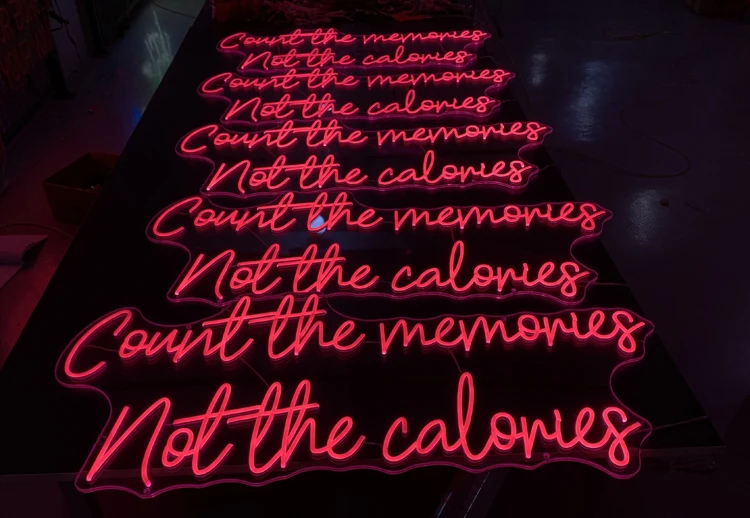 Count the memories
Not the calories
Count the memories
Not the calories
Count the memories
Not the calories
Count the memories
Not the calories
Count the memories
Not the calories